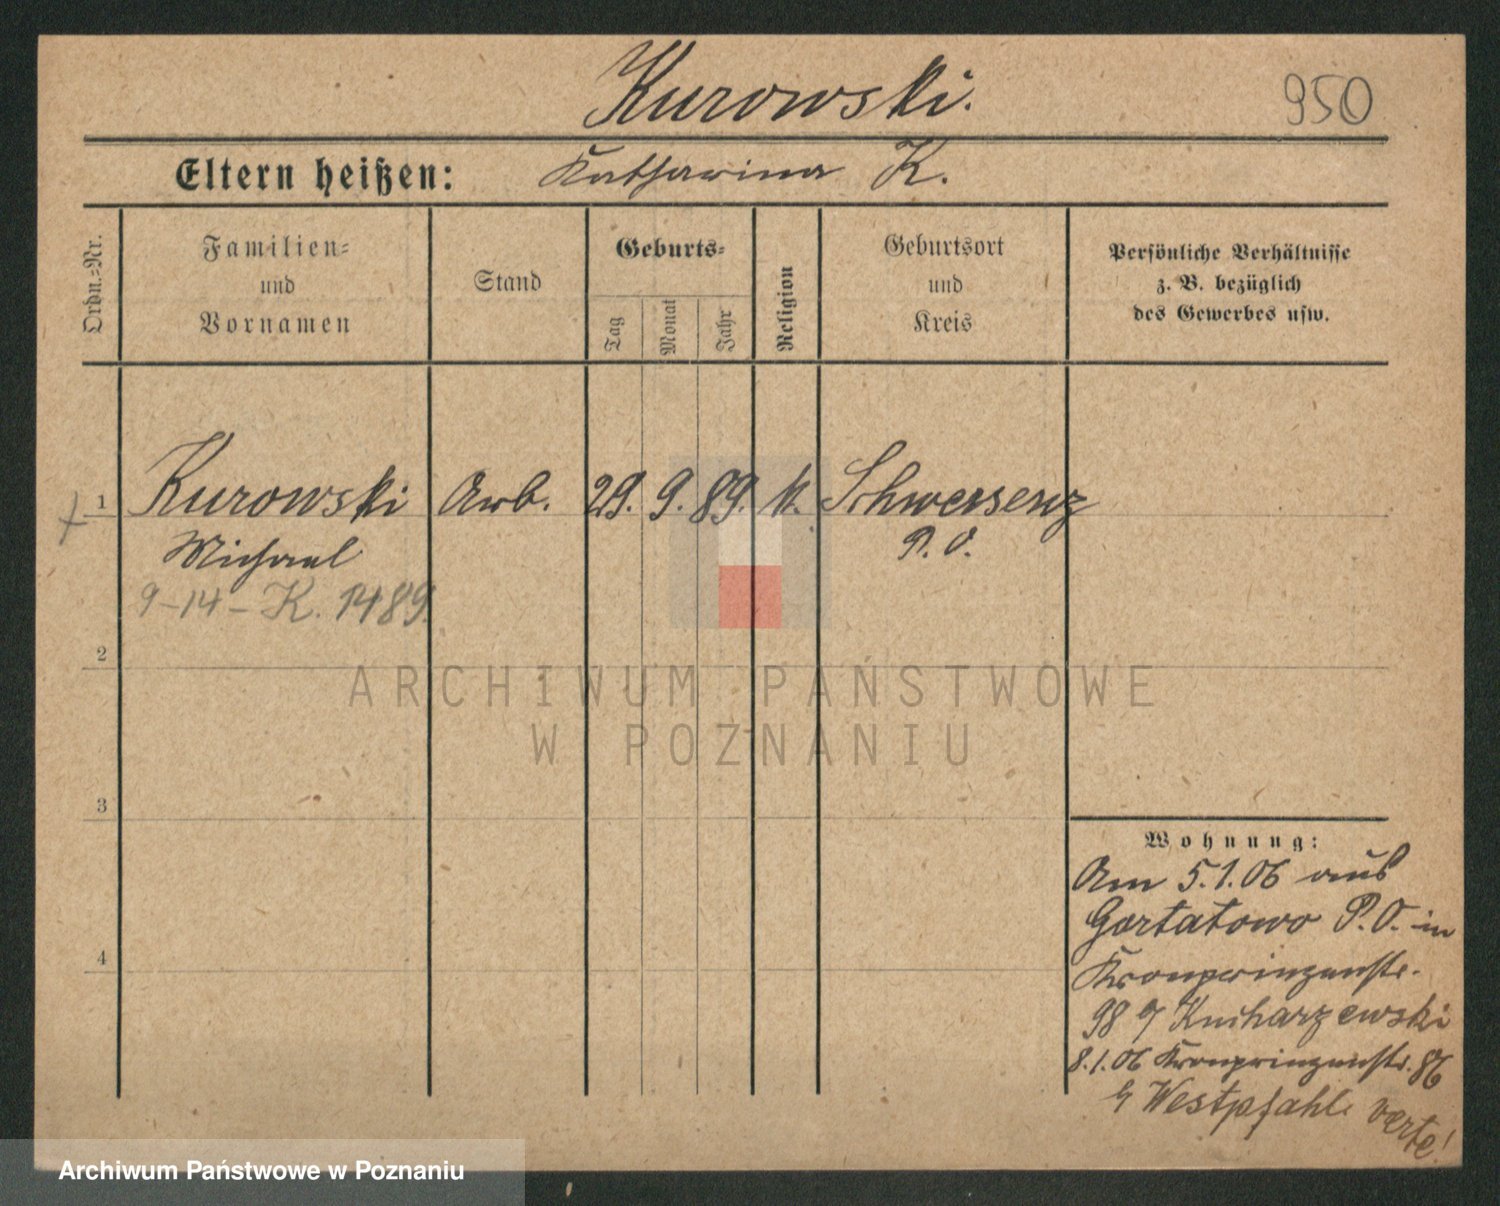 Kurowski.
950
Eltern heißen: Katharina K.
Ordn.-Nr.
Familien-
und
Vornamen
Stand
Geburts-
Tag
Monat
Jahr
Religion
Geburtsort
und
Kreis
Persönliche Verhältnisse
z. B. bezüglich
des Gewerbes usw.
1 Kurowski Arb. 29. 9. 89. k. Schwersenz
Michael P. O.
9-14-K. 1489.
2
3
4
Wohnung:
Am 5.1.06 aus
Gortatowo P.O. in
Kronprinzenstr.
98 Kucharzewski
8.1.06 Kronprinzenstr. 86
Westpfahl verte!
ARCHIWUM PAŃSTWOWE
W POZNANIU
Archiwum Państwowe w Poznaniu